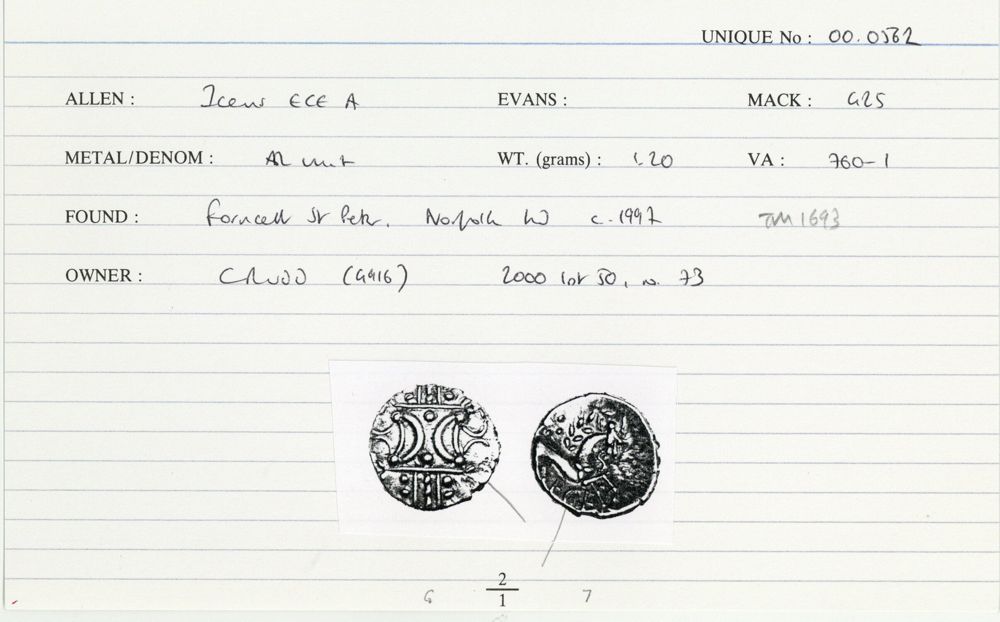 UNIQUE No : 00.0562
ALLEN : Iceni ECE A EVANS : MACK : 425
METAL/DENOM : AR unit WT. (grams) : 1.20 VA : 760-1
FOUND : Forncett St Peter, Norfolk c. 1997 TM1693
OWNER : (4416) 2000 lot 50, no. 73
6 2/1 7